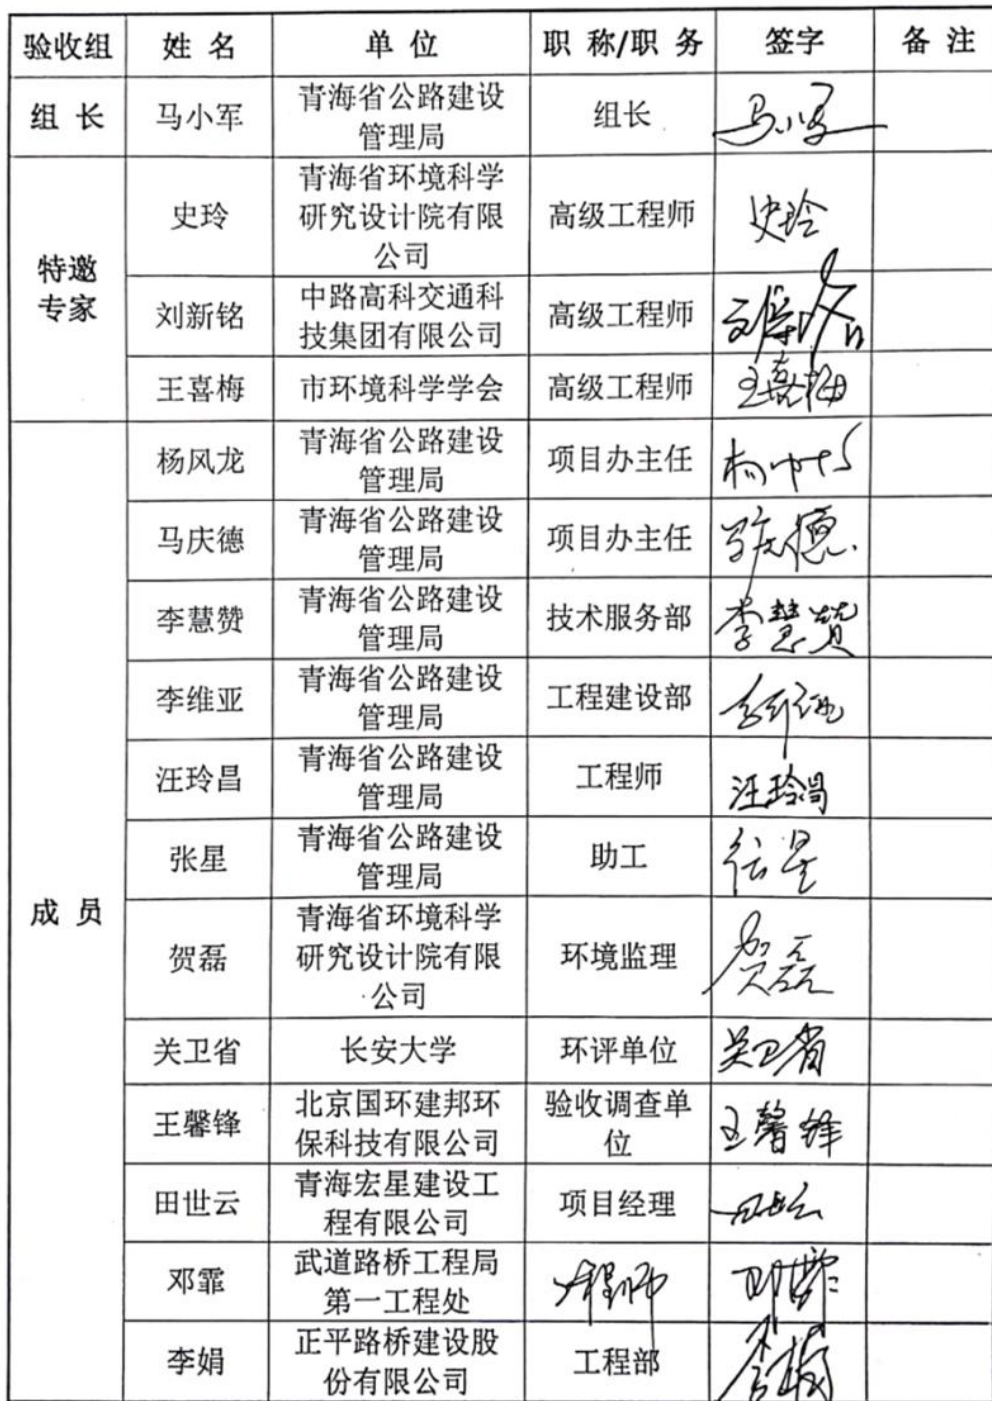 验收组 姓 名 单 位 职 称/职 务 签字 备 注
组 长 马小军 青海省公路建设
管理局 组长 马小军
特邀
专家
史玲 青海省环境科学
研究设计院有限
公司 高级工程师 史玲
刘新铭 中路高科交通科
技集团有限公司 高级工程师
王喜梅 市环境科学学会 高级工程师 王喜梅
成 员
杨风龙 青海省公路建设
管理局 项目办主任
马庆德 青海省公路建设
管理局 项目办主任 马庆德
李慧赞 青海省公路建设
管理局 技术服务部 李慧赞
李维亚 青海省公路建设
管理局 工程建设部
汪玲昌 青海省公路建设
管理局 工程师 汪玲昌
张星 青海省公路建设
管理局 助工 张星
贺磊 青海省环境科学
研究设计院有限
公司 环境监理 贺磊
关卫省 长安大学 环评单位 关卫省
王馨锋 北京国环建邦环
保科技有限公司 验收调查单
位 王馨锋
田世云 青海宏星建设工
程有限公司 项目经理 田世云
邓霏 武道路桥工程局
第一工程处 工程师 邓霏
李娟 正平路桥建设股
份有限公司 工程部